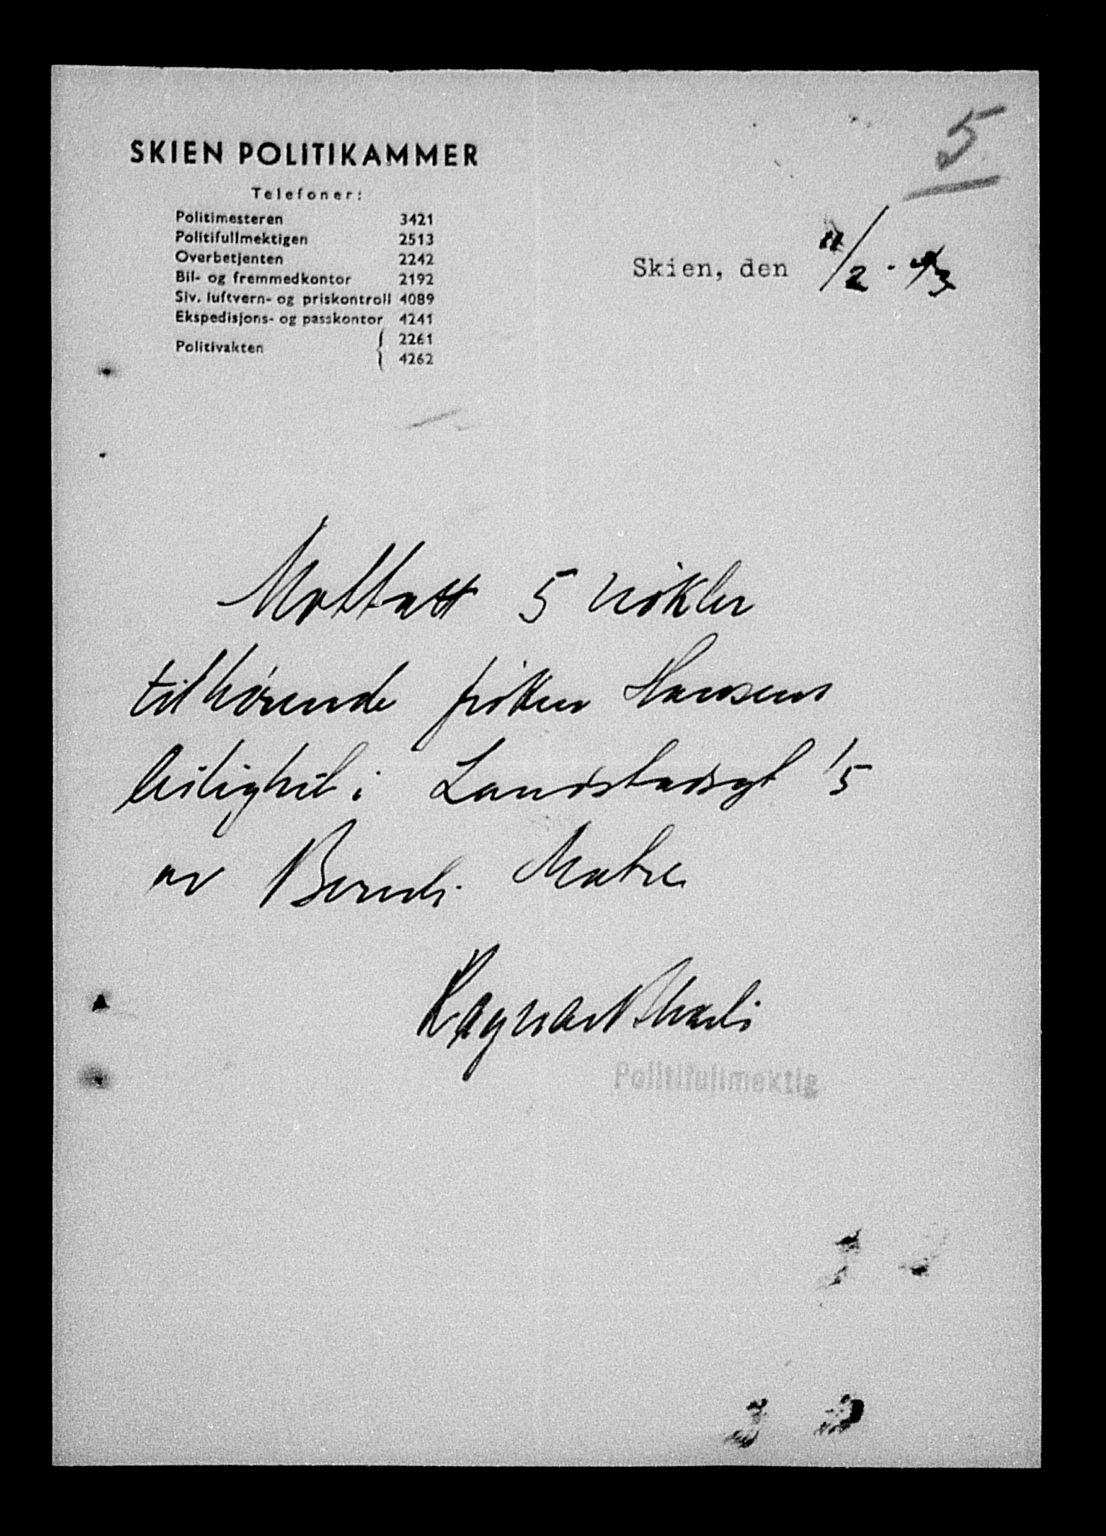 5
SKIEN POLITIKAMMER
Telefoner:
Politimesteren 3421
Politifullmektigen 2513
Overbetjenten 2242
Bil- og fremmedkontor 2192
Siv. luftvern- og priskontroll 4089
Ekspedisjons- og passkontor 4241
Politivakten { 2261
4262
Skien, den 11/2 - 43
Mottatt 5 nøkler
tilhørende frøken Hansens
leilighet i Landstadsgt 15
av Berndt Matre
Ragnar
Politifullmektig